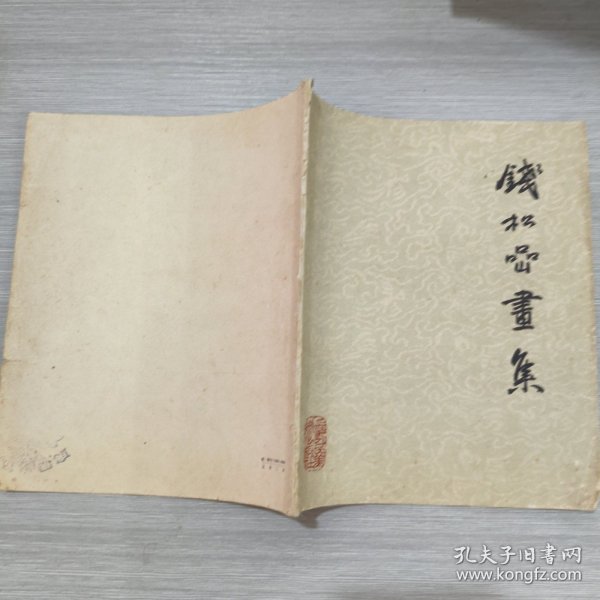 錢松喦畫集
孔夫子旧书网
www.kongfz.com